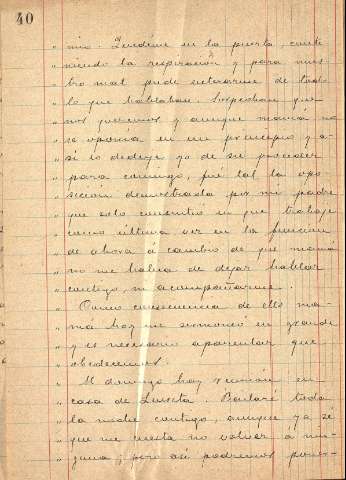 40
" mio. Quedéme en la puerta, conte
" niendo la respiración y para nues
" tro mal pude enterarme de todo
" lo que hablaban. Sospechan que
" nos queremos y aunque mamá no
" se oponia en un principio y a
" si lo deduje yo de su proceder
" para conmigo, fue tal la opo
" sición demostrada por mi padre
" que solo consienten en que trabaje
" como última vez en la función
" de ahora á cambio de que mamá
" no me habia de dejar hablar
" contigo, ni acompañarme.
" Como consecuencia de ello ma-
" má hoy me sermoneó en grande
" y es necesario aparentar que
" obedecemos.
" El domingo hay reunión en
" casa de Bailaré toda
" la noche contigo, aunque ya se
" que me cuesta no volver á nin
" guna, pero asi podremos poner-